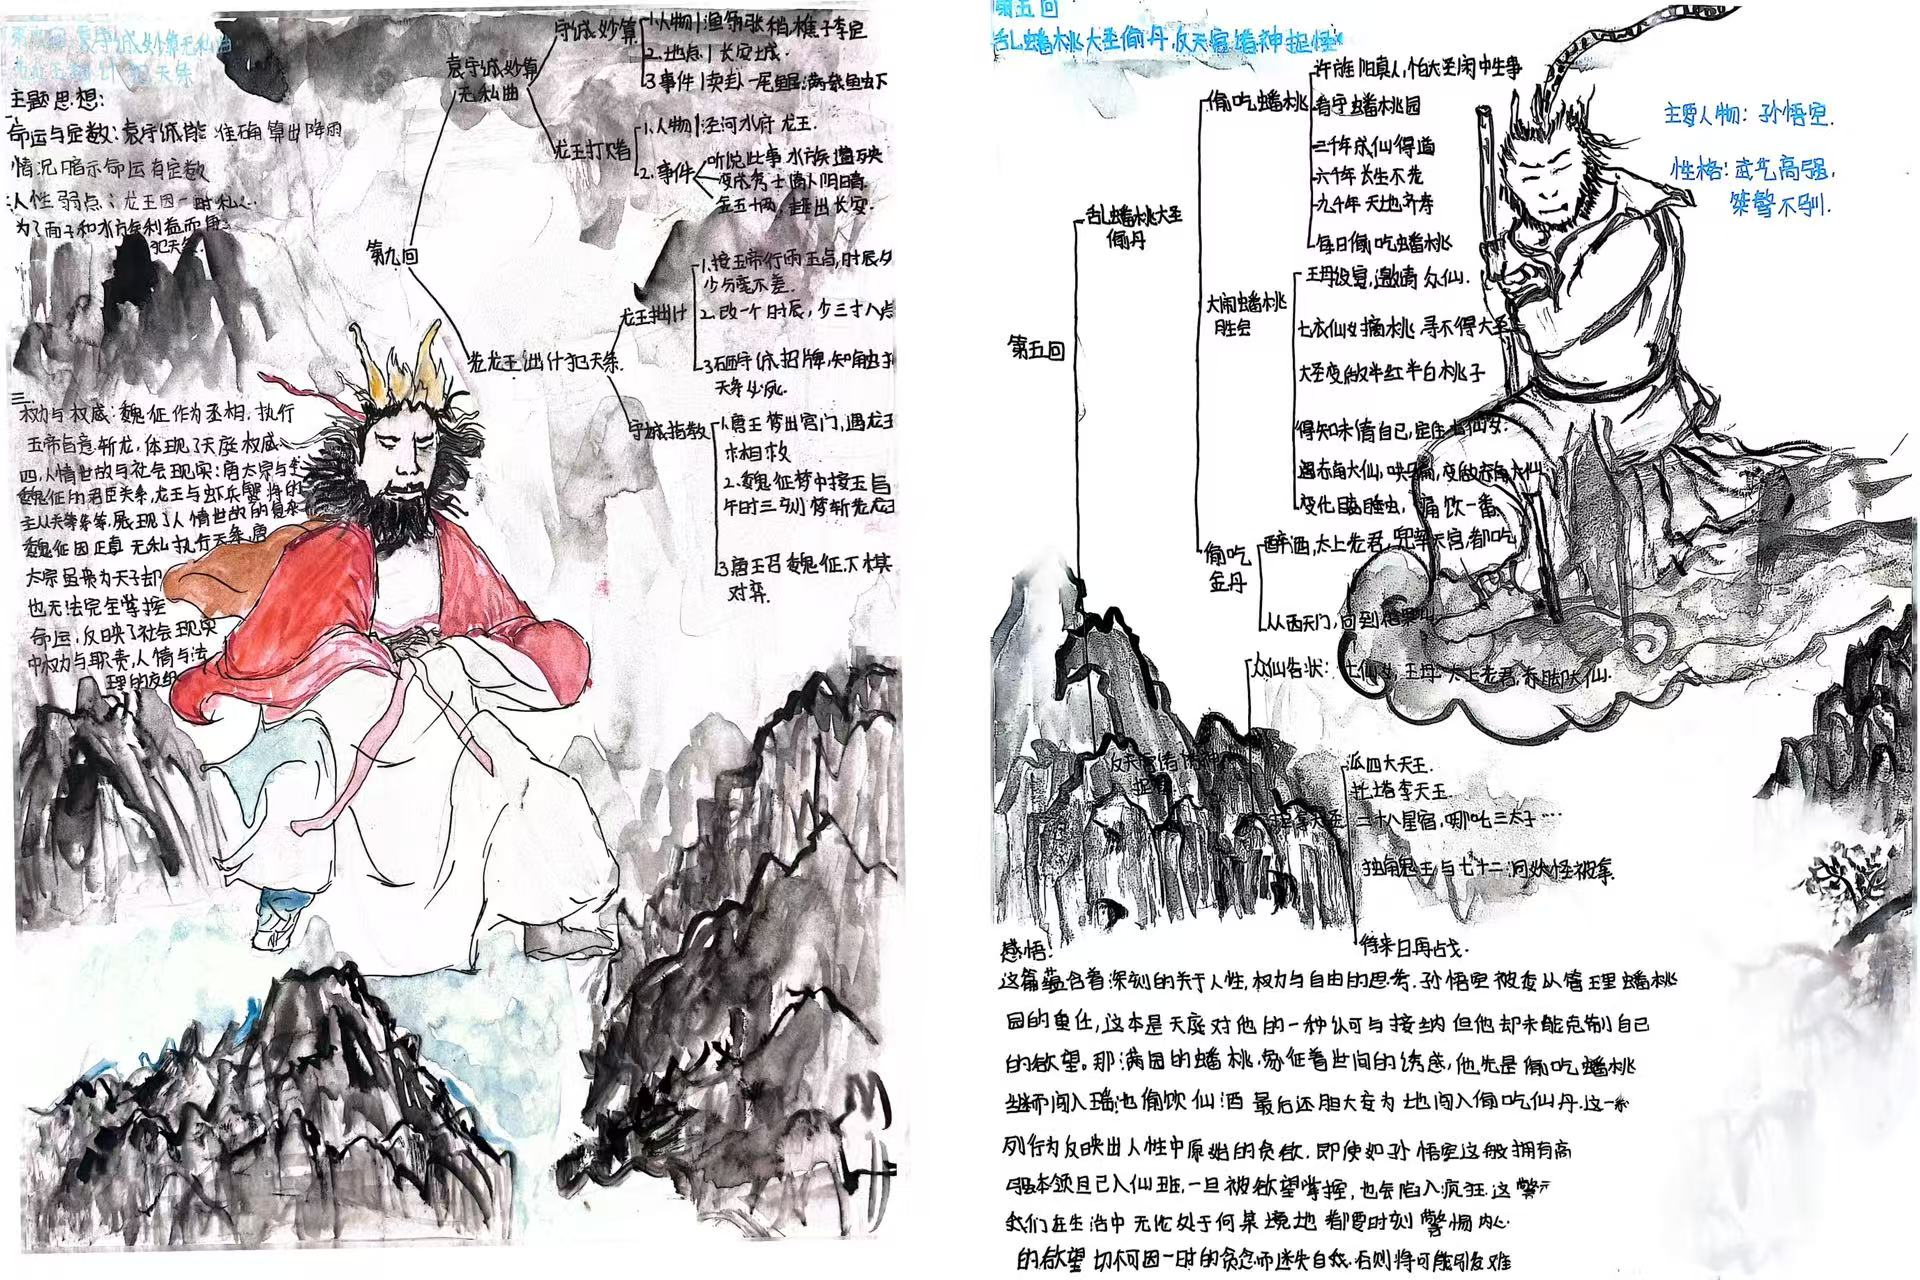 袁守诚妙算无私曲
主题思想:
命运与定数:袁守诚能准确算出降雨
情况暗示命运有定数
人性弱点:龙王因一时私心.
为了面子和水族利益而再
犯天条.
三
权力与权威:魏征作为丞相,执行
玉帝旨意斩龙,体现了天庭权威
四,人情世故与社会现实:唐太宗与
魏征的君臣关系,龙王与虾兵蟹将的
主从关等等,展现了人情世故的复杂
魏征因正直无私执行天条,唐
太宗虽来为天子却
也无法完全掌控
命运,反映了社会现实
中权力与职责,人情与法
理的
第九回
袁守诚妙算
无私曲
守诚妙算
1.人物|渔翁张稍樵子李定
2.地点|长安城.
3事件|卖卦一尾鲤:满袋鱼虾
龙王打赌
1.人物|泾河水府龙王.
2.事件
听说此事水族遭殃
变成秀士
金五十两 赶出长安.
老龙王出计犯天条.
龙王拙计
1.接玉帝行雨玉旨,时辰
少分毫不差.
2.改一个时辰,少三寸八点
3.砸守诚招牌,知触
天条必死.
守诚指教
1唐王梦出宫门,遇龙王
相救
2.魏征梦中接玉旨
午时三刻梦斩老龙
3唐王召魏征下棋
对弈.
第五回
乱蟠桃大圣偷丹,反天宫诸神捉怪
主要人物:孙悟空.
性格:武艺高强,
桀骜不驯.
第五回
乱蟠桃大圣
偷丹
偷吃蟠桃
许旌阳真人,怕大圣闲中生事
看守蟠桃园
三千年成仙得道
六千年长生不老
九千年天地齐寿
每日偷吃蟠桃
大闹蟠桃
胜会
王母设宴,邀请众仙.
七衣仙女摘桃寻不得大圣
大圣变做半红半白桃子
得知未请自己,定住七仙女.
遇赤脚大仙,哄骗,变做赤脚大仙
变化瞌睡虫,痛饮一番
偷吃
金丹
醉酒,太上老君,兜率天宫,都吃
从西天门,回到花果山
众仙告状:七仙女,王母 太上老君,赤脚大仙.
派四大天王.
托塔李天王
二十八星宿,哪吒三太子…
独角鬼王与七十二洞妖怪被拿
待来日再占戈.
感悟:
这篇蕴含着深刻的关于人性,权力与自由的思考.孙悟空被委从管理蟠桃
园的重任,这本是天庭对他的一种认可与接纳但他却未能克制自己
的欲望。那满园的蟠桃,象征着世间的诱惑,他先是偷吃蟠桃
继而闯入瑶池偷饮仙酒 最后还胆大妄为地闯入偷吃仙丹.这一系
列行为反映出人性中原始的贪欲.即使如孙悟空这般拥有高
强本领且已入仙班,一旦被欲望掌控,也会陷入疯狂.这警示
我们在生活中无论处于何某境地都要时刻警惕内心
的欲望切不可因一时的贪念而迷失自我.否则将可能引发难